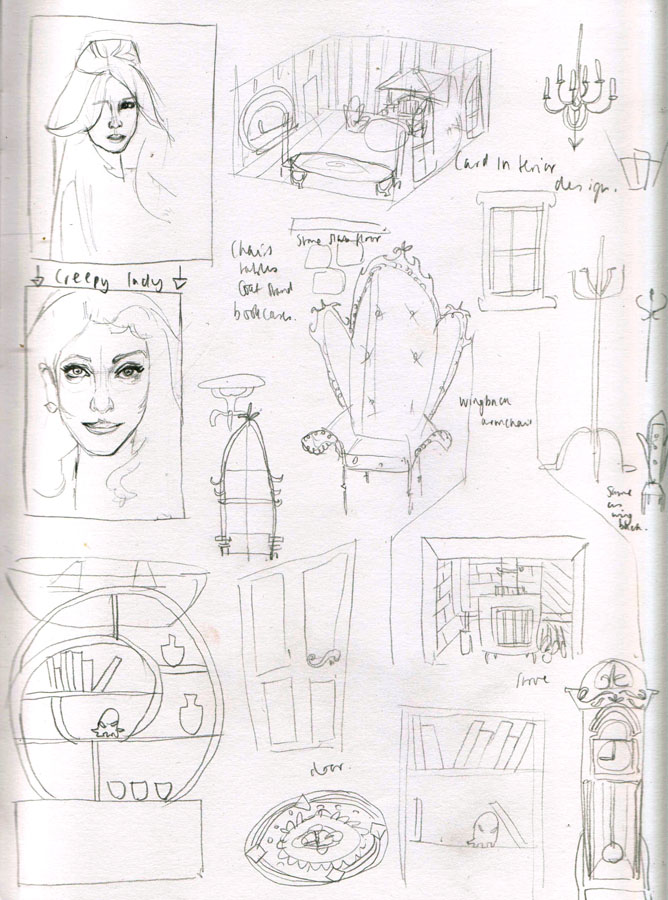 Card Interior
design.
Creepy lady
Chairs
tables
Coat Stand
bookcases.
Stone floor
wingback
armchair
Same
as
wing
back.
Stove
door.